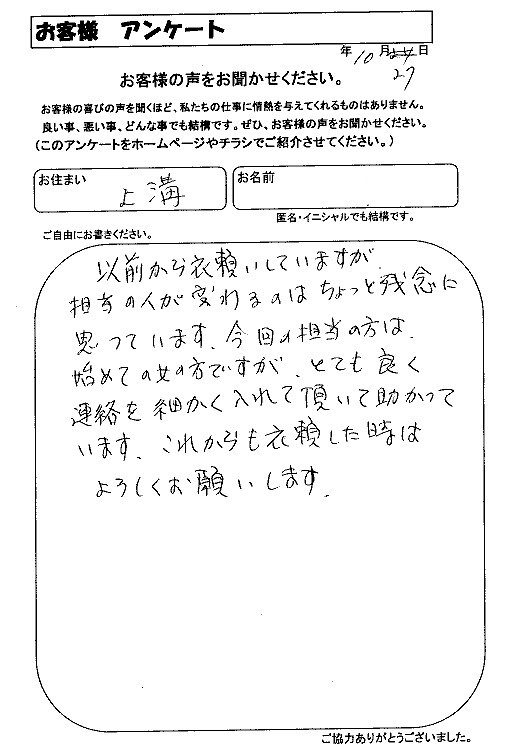 お客様 アンケート
年 10 月 24 日
27
お客様の声をお聞かせください。
お客様の喜びの声を聞くほど、私たちの仕事に情熱を与えてくれるものはありません。
良い事、悪い事、どんな事でも結構です。ぜひ、お客様の声をお聞かせください。
(このアンケートをホームページやチラシでご紹介させてください。)
お住まい 上溝
お名前
匿名・イニシャルでも結構です。
ご自由にお書きください。
以前から衣頼いしていますが
担当の人が変わるのはちょっと残念に
思っています。今回の担当の方は、
始めての女の方ですが、とても良く
連絡を細かく入れて頂いて助かって
います。これからも衣頼した時は
よろしくお願いします。
ご協力ありがとうございました。